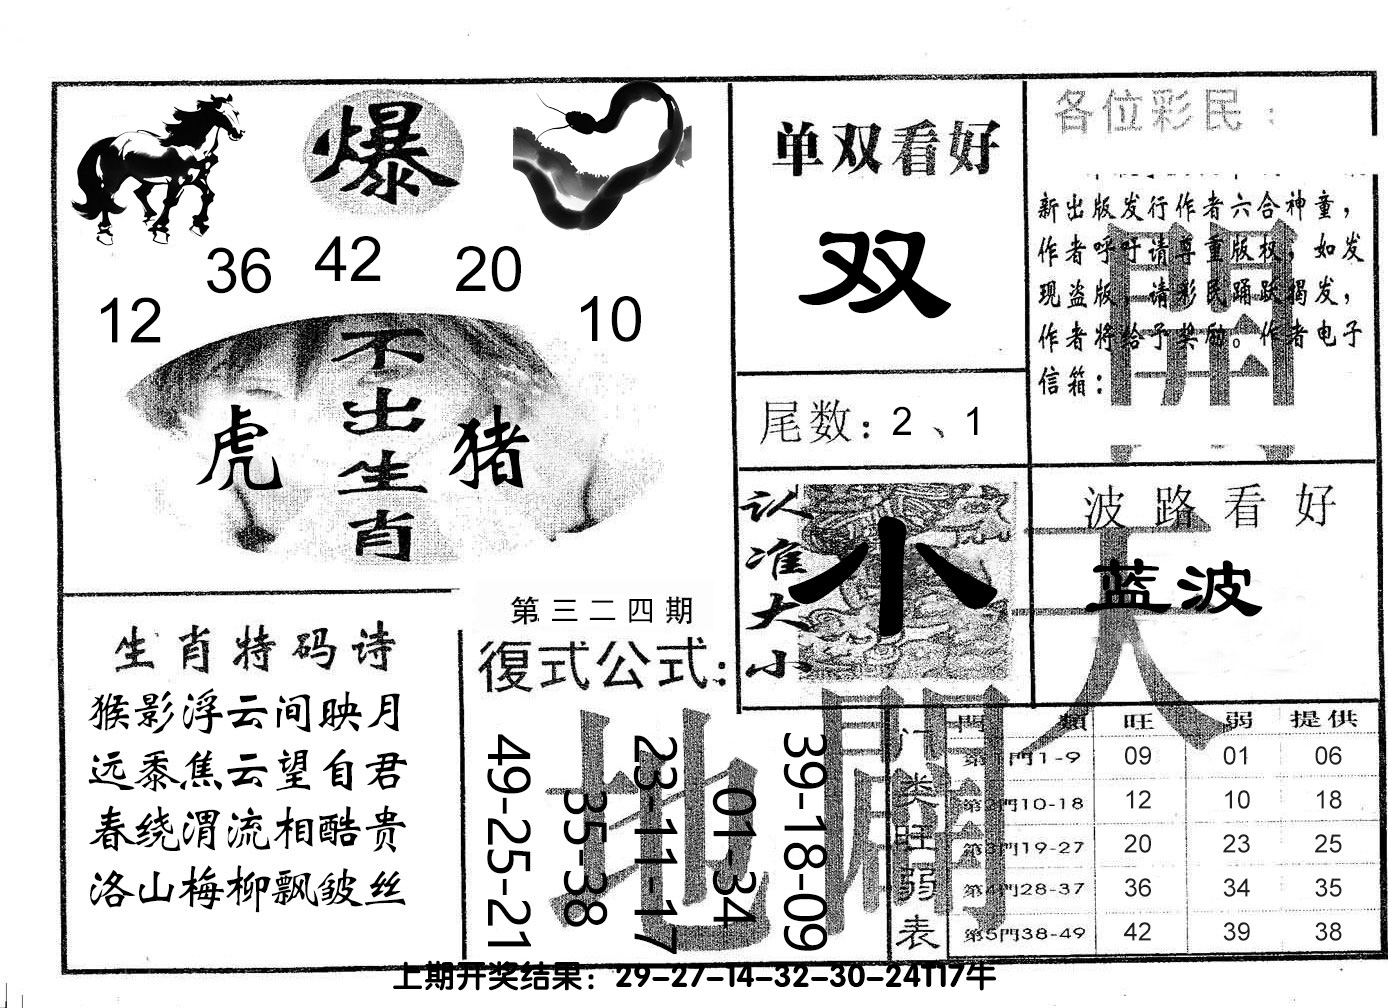 爆
36 42 20
12 10
不出生肖
虎 猪
单双看好
双
尾数：2、1
各位彩民：
新出版发行作者六合神童，
作者呼吁请尊重版权，如发
现盗版，请彩民踊跃揭发，
作者将给予奖励。作者电子
信箱：
認准大小
小
波路看好
蓝波
天
地
開
生肖特码诗
猴影浮云间映月
远黍焦云望自君
春绕渭流相酷贵
洛山梅柳飘皱丝
第三二四期
復式公式：
49-25-21
35-38
23-11-17
01-34
39-18-09
门类旺弱表
門類 旺 弱 提供
第1門1-9 09 01 06
第2門10-18 12 10 18
第3門19-27 20 23 25
第4門28-37 36 34 35
第5門38-49 42 39 38
上期开奖结果：29-27-14-32-30-24T17牛